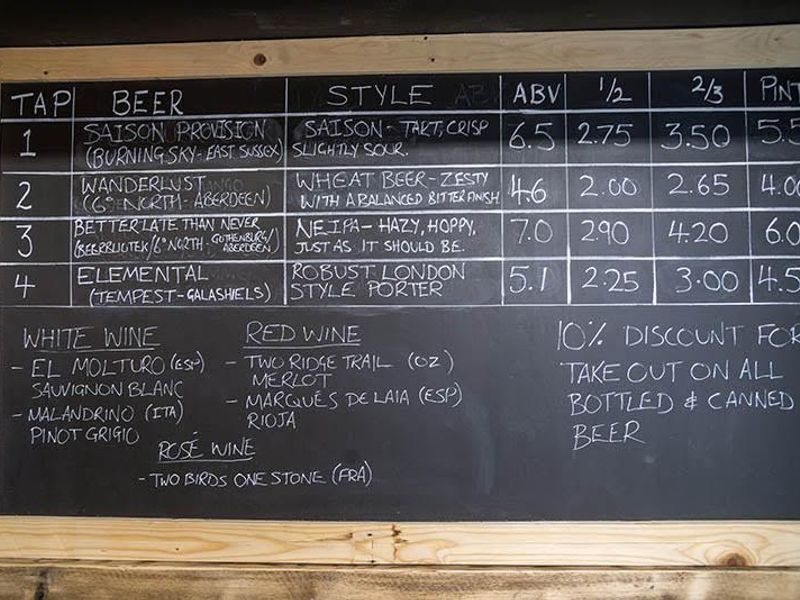 TAP BEER STYLE ABV 1/2 2/3 PINT
1 SAISON PROVISION SAISON - TART, CRISP 6.5 2.75 3.50 5.5
(BURNING SKY - EAST SUSSEX) SLIGHTLY SOUR.
2 WANDERLUST WHEAT BEER - ZESTY 4.6 2.00 2.65 4.0
(6° NORTH - ABERDEEN) WITH A BALANCED BITTER FINISH
3 BETTER LATE THAN NEVER NEIPA - HAZY, HOPPY, 7.0 2.90 4.20 6.0
(BEERBLIOTEK/6° NORTH - GOTHENBURG/ABERDEEN) JUST AS IT SHOULD BE.
4 ELEMENTAL ROBUST LONDON 5.1 2.25 3.00 4.5
(TEMPEST - GALASHIELS) STYLE PORTER
WHITE WINE
- EL MOLTURO (ESP)
SAUVIGNON BLANC
- MALANDRINO (ITA)
PINOT GRIGIO
RED WINE
- TWO RIDGE TRAIL (OZ)
MERLOT
- MARQUÈS DE LAIA (ESP)
RIOJA
ROSÉ WINE
- TWO BIRDS ONE STONE (FRA)
10% DISCOUNT FOR
TAKE OUT ON ALL
BOTTLED & CANNED
BEER